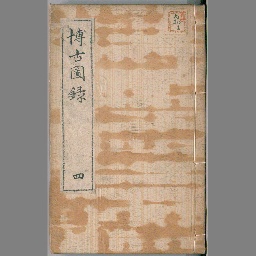 博古圖錄
四